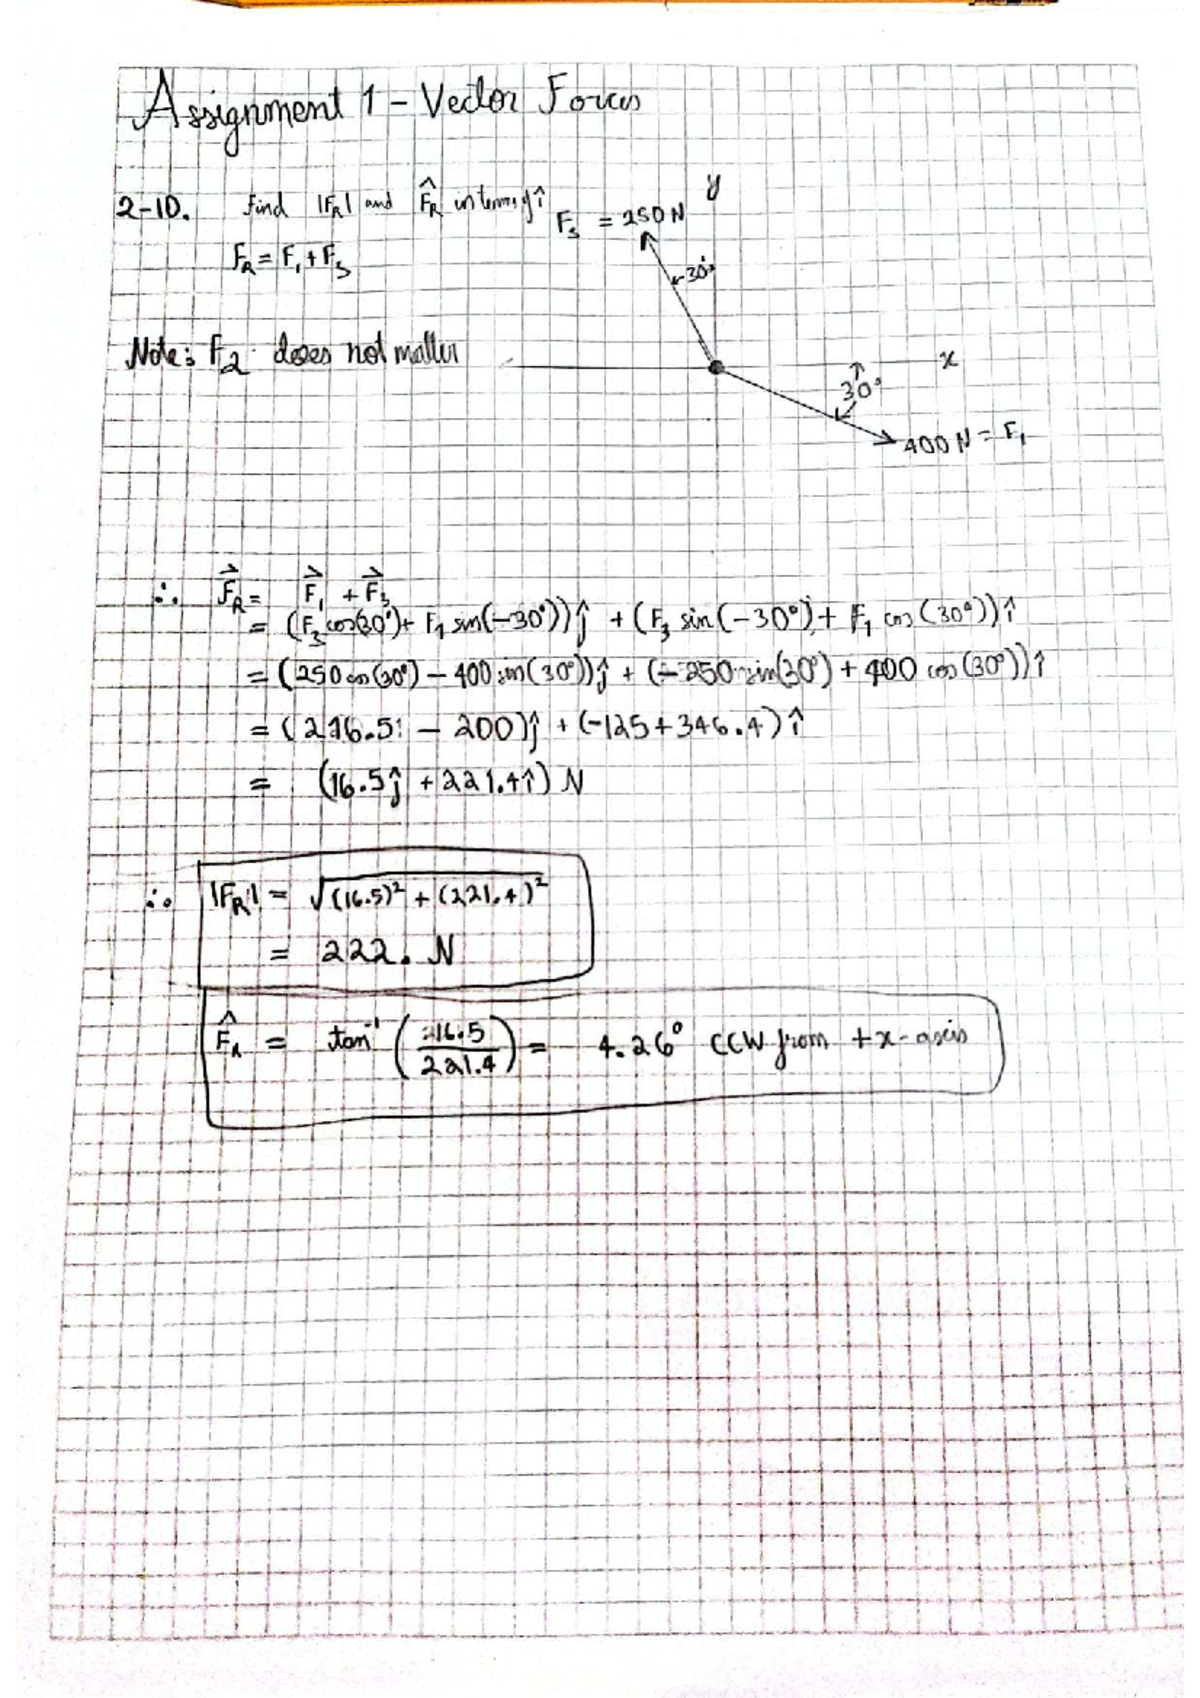 Assignment 1 - Vector Forces
2-10. Find |F_R| and F̂_R in terms of î
F_R = F_1 + F_3
F_3 = 250 N
y
30°
Note: F_2 does not matter
x
30°
400 N = F_1
∴ F⃗_R = F⃗_1 + F⃗_3
= (F_3 cos(30°) + F_1 sin(-30°)) ĵ + (F_3 sin(-30°) + F_1 cos(30°)) î
= (250 cos(30°) - 400 sin(30°)) ĵ + (-250 sin(30°) + 400 cos(30°)) î
= (216.5 - 200) ĵ + (-125 + 346.4) î
= (16.5 ĵ + 221.4 î) N
∴ |F_R| = √((16.5)² + (221.4)²)
= 222. N
F̂_R = tan⁻¹(16.5/221.4) = 4.26° CCW from +x-axis